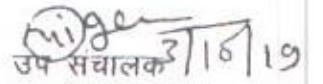 उप संचालक 3/10/19